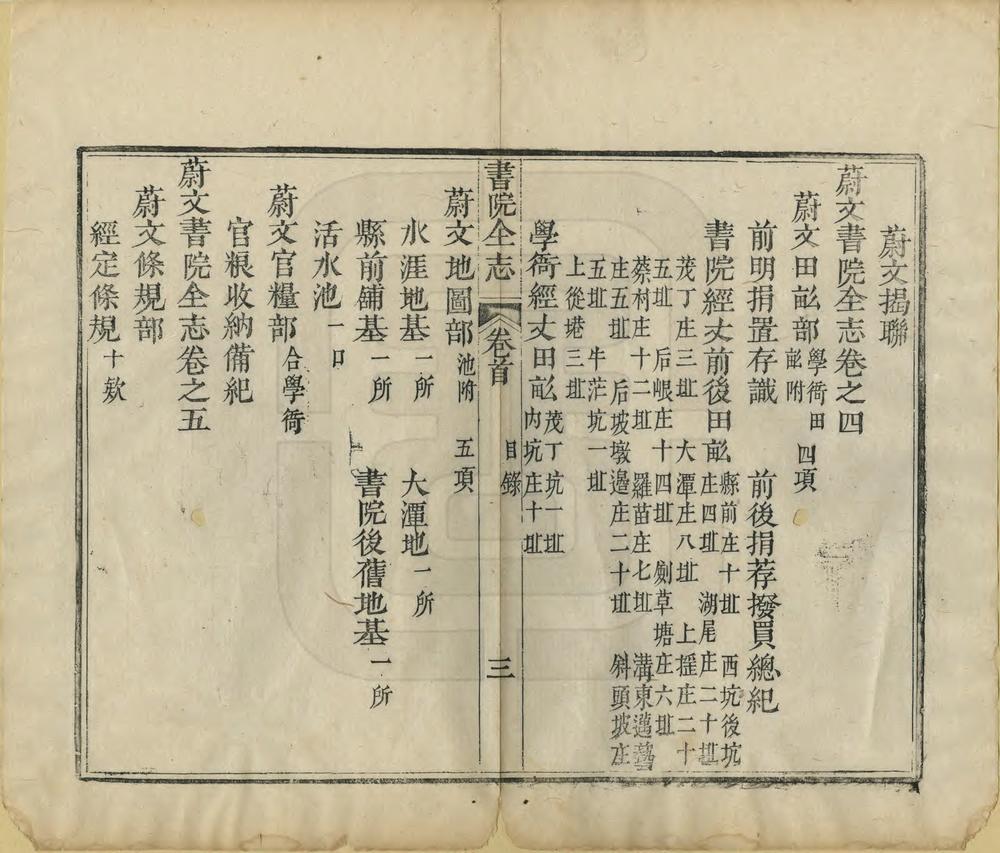 蔚文揭聯
蔚文書院全志卷之四
蔚文田畝部 學衙田畝附 四項
前明捐置存識 前後捐荐撥買總紀
書院經丈前後田畝 縣前庄十坵 西坑後坑
庄四坵 湖尾庄二十坵
茂丁庄三坵 大潭庄八坵 上摇庄二十
五坵 后岷庄十四坵 劍草塘庄六坵
蔡村庄十二坵 羅苗庄七坵 溝東邁
庄五坵 后坡墩邉庄二十坵 斜頭坡庄
五坵 牛茫坑一坵
上從塂三坵
學衙經丈田畝 茂丁坑一坵
内坑庄十坵
書院全志 卷首 目錄 三
蔚文地圖部 池附 五項
水涯地基 一所 大潭地 一所
縣前舖基 一所 書院後舊地基 一所
活水池 一口
蔚文官糧部 合學衙
官粮收納備紀
蔚文書院全志卷之五
蔚文條規部
經定條規 十欸